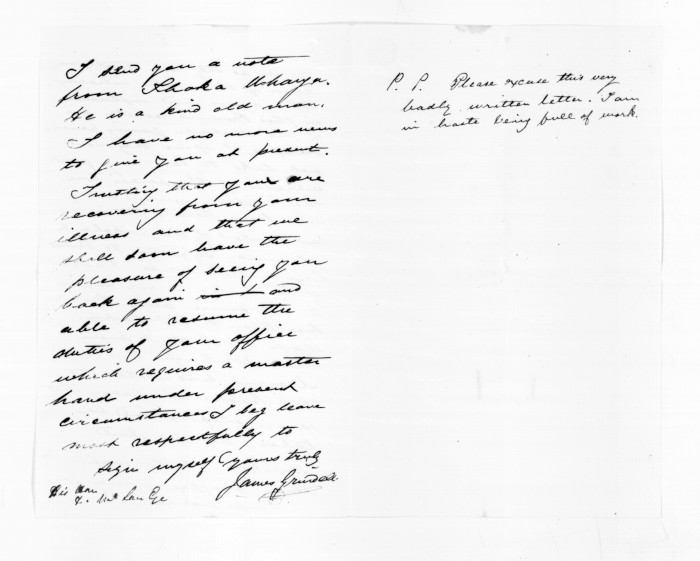 I send you a note
from
He is a kind old man.
I have no more news
to give you at present.
Trusting that you are
recovering from your
illness and that we
shall soon have the
pleasure of seeing you
back again and
able to resume the
duties of your office
which requires a master
hand under present
circumstances I beg leave
most respectfully to
sign myself yours truly
James
His Hon
Esq
P. P. Please excuse this very
badly written letter. I am
in haste being full of work.